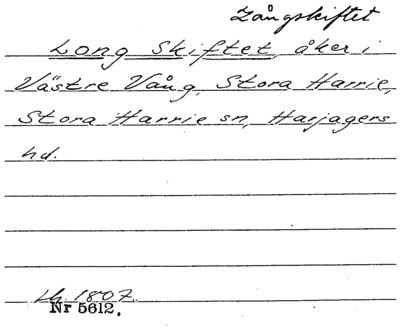 Långskiftet
Long Skiftet, åker i
Västre Vång, Stora Harrie,
Stora Harrie sn, Harjagers
hd.
Lh. 1807.
Nr 5612.